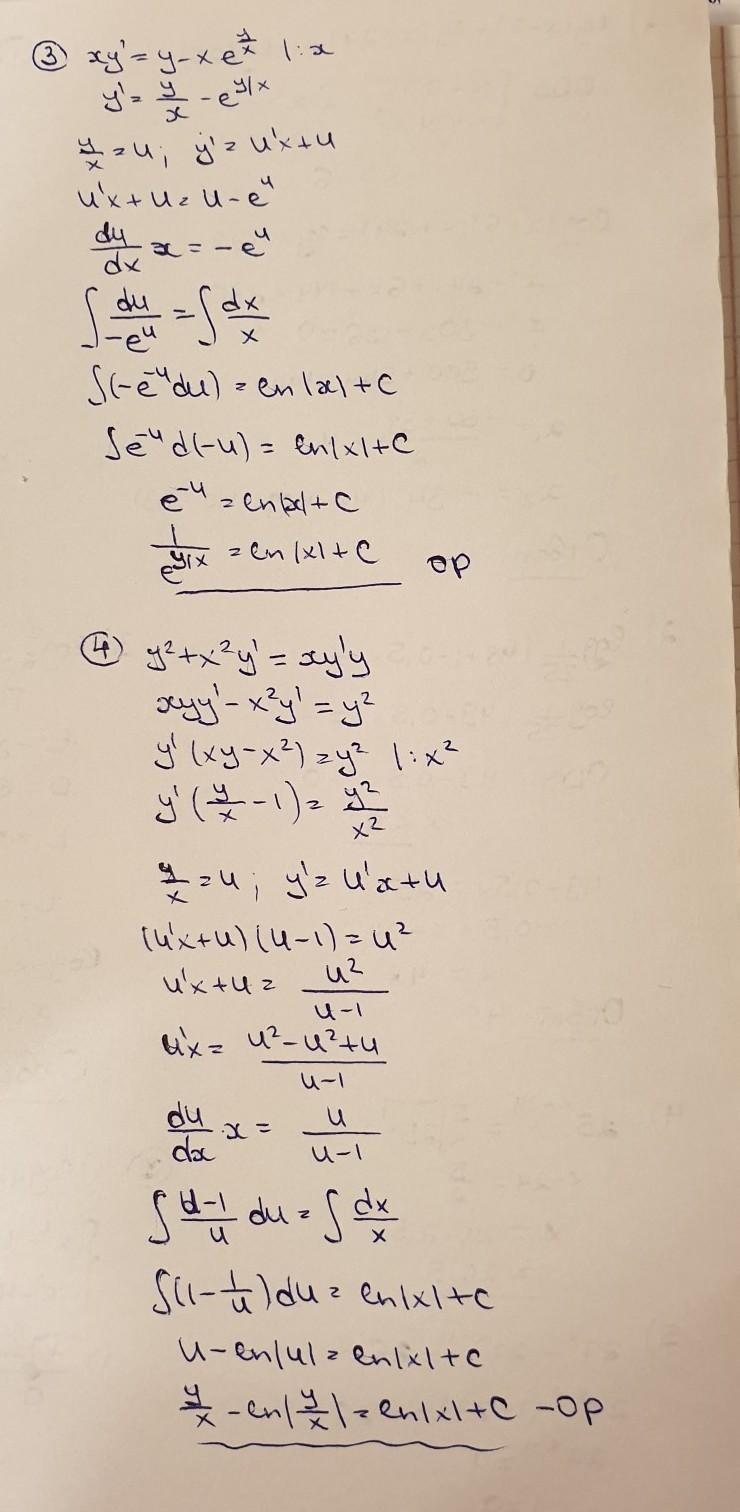 ③ xy' = y - x e^{y/x} |:x
y' = y/x - e^{y/x}
y/x = u; y' = u'x + u
u'x + u = u - e^u
du/dx x = -e^u
∫ du/-e^u = ∫ dx/x
∫(-e^{-u} du) = ln|x| + C
∫e^{-u} d(-u) = ln|x| + C
e^{-u} = ln|x| + C
1/e^{y/x} = ln|x| + C op
④ y² + x²y' = xy'y
xyy' - x²y' = y²
y'(xy - x²) = y² |:x²
y'(y/x - 1) = y²/x²
y/x = u; y' = u'x + u
(u'x + u)(u - 1) = u²
u'x + u = u²/u-1
u'x = u² - u² + u/u-1
du/dx · x = u/u-1
∫ u-1/u du = ∫ dx/x
∫(1 - 1/u) du = ln|x| + C
u - ln|u| = ln|x| + C
y/x - ln|y/x| = ln|x| + C - op